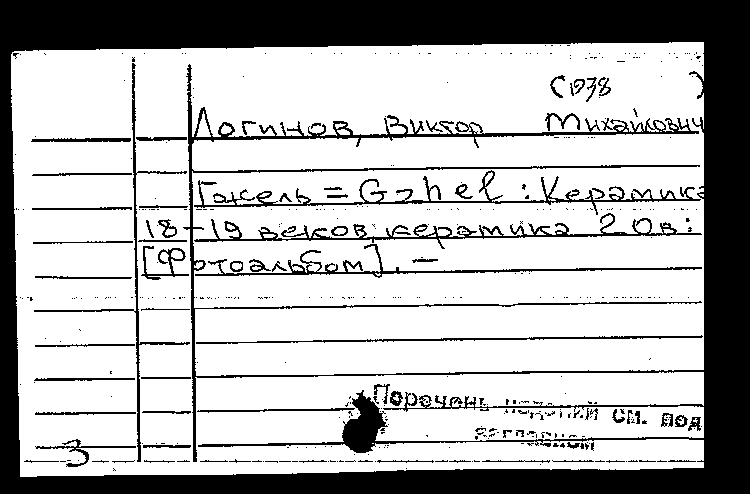 (1938 )
Логинов, Виктор Михайлович
Гжель = Gzhel : Керамика
18-19 веков, керамика 20в:
[Фотоальбом]. —
Перечень изданий см. под
заглавием
3